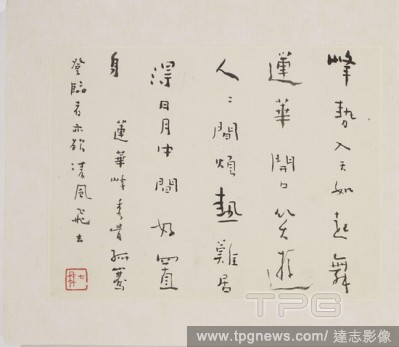 峰勢入天如起舞
蓮華開口笑遊
人：間煩熱難居
得日月中間好置
身　蓮華峰秀嘗孤騫
登臨者亦欲清風飛去
TPG
www.tpgnews.com / 達志影像